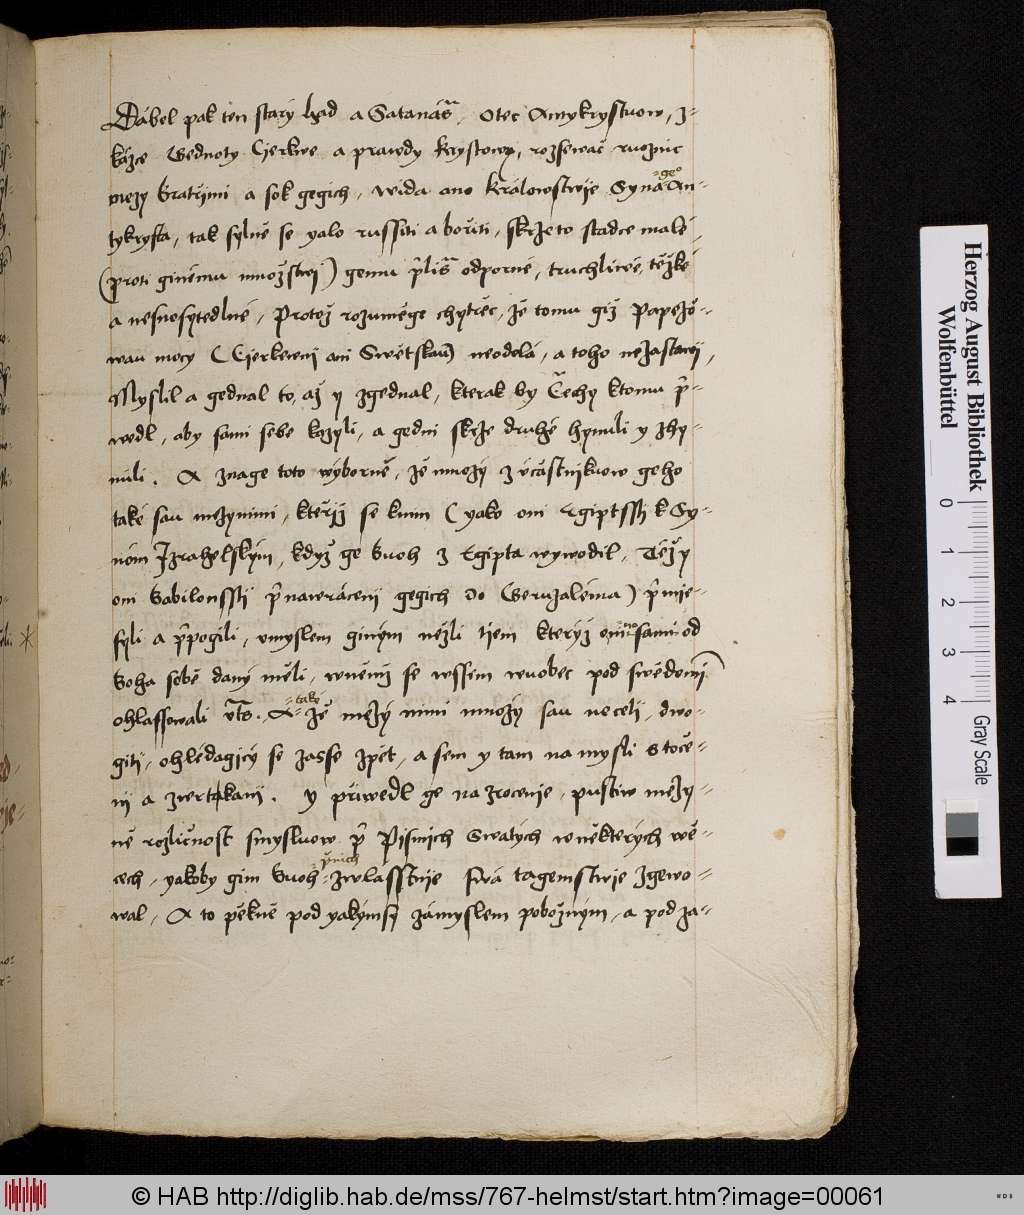 Ďábel pak ten starý had a Satanáš, Otec Antykrystuow, z-
kázce Gednoty Cierkwe a prawdy krystowy, rozsewač ruoznic
mezy bratřimi a sok gegich, wida ano králowstwije Syna geo An-
tykrysta, tak sylně se yalo russiti a bořiti, skrze to stadce malé,
(proti ginému množstwi) gemu přliš odporné, truchliwé, těžké
a nesnosytedlné, Protož rozuměge chytrec, že tomu giž Papežo-
wau mocy Cierkewni ani Swětskau neodolá, a toho nezastawi,
Myslil a gednal to, až y zgednal, kterak by Čechy ktomu př-
wedl, aby sami sebe kazyli, a gedni skrze druhé hynuli y zhy-
nuli. A znage toto wýborně, že mnozý z včastnikuow geho
také sau mezynimi, kteřijž se knim (yako oni Egiptssti k Sy-
nóm Izrahelským, když ge Buoh z Egipta wywodil, Též y
oni Babilonssti př nawráceni gegich do Geruzaléma) přmie-
syli a přpogili, vmyslem giným nežli tiem kterýž oni no sami od
Boha sobě daný měli, wněmž se wssem wuobec pod swědomij
ohlassowali etc. A také že mezý nimi mnozý sau neceli, dwo-
gitij, ohlédagicý se zasse zpět, a sem y tam na mysli s toče-
ni a zwertkani. y přiwedl ge na zrocenie, pustiw mezy-
ně rozličnost smysluow př Pismich Swatých wněkterých wě-
cech, yakoby gim Buoh ginich zwlásstnie swá tagemstwie zgewo-
wal, A to pěkně pod yakýmsy zámyslem pobožným, a pod za-
Herzog August Bibliothek
Wolfenbüttel
0 1 2 3 4
Gray Scale
© HAB http://diglib.hab.de/mss/767-helmst/start.htm?image=00061
WDB